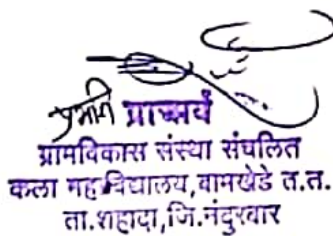 प्रभारी प्राचार्य
ग्रामविकास संस्था संचलित
कला महाविद्यालय,वामखेडे त.त.
ता.शहादा,जि.नंदुरबार